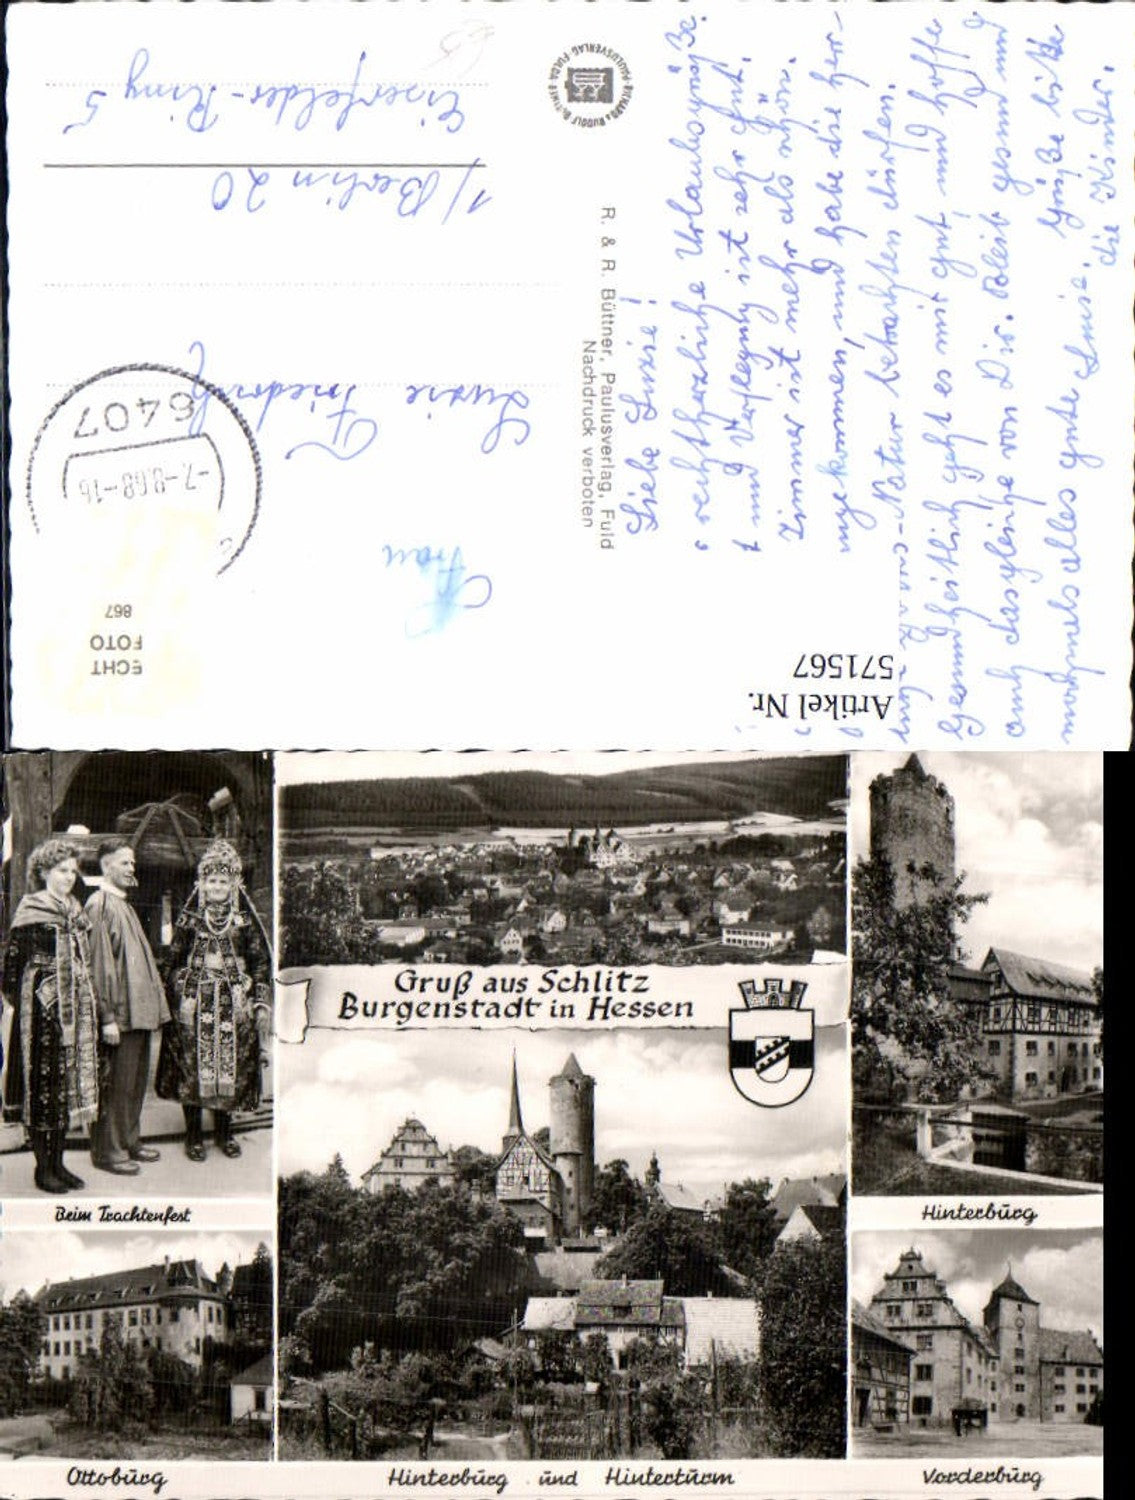 Eiserfelder-Ring 5
1/Berlin 20
Luzie Friedrich
Frau
6407
-7.-8.68-16
ECHT
FOTO
867
RICHARD & RUDOLF BÜTTNER · PAULUSVERLAG · FULDA
R. & R. Büttner, Paulusverlag, Fuld
Nachdruck verboten
Liebe Luzie!
recht herzliche Urlaubsgrüße.
und Verpflegung ist sehr gut.
Zimmer ist mehr als schön.
angekommen, und habe die her-
Natur betrachten dürfen.
Gesundheitlich geht es mir gut, und hoffe
auch dasgleiche von Dir. Bleib gesund und
nochmals alles gute Luzie. Grüße bitte
die Kinder.
Artikel Nr.
571567
Gruß aus Schlitz
Burgenstadt in Hessen
Beim Trachtenfest
Hinterburg
Ottoburg
Hinterburg und Hinterturm
Vorderburg